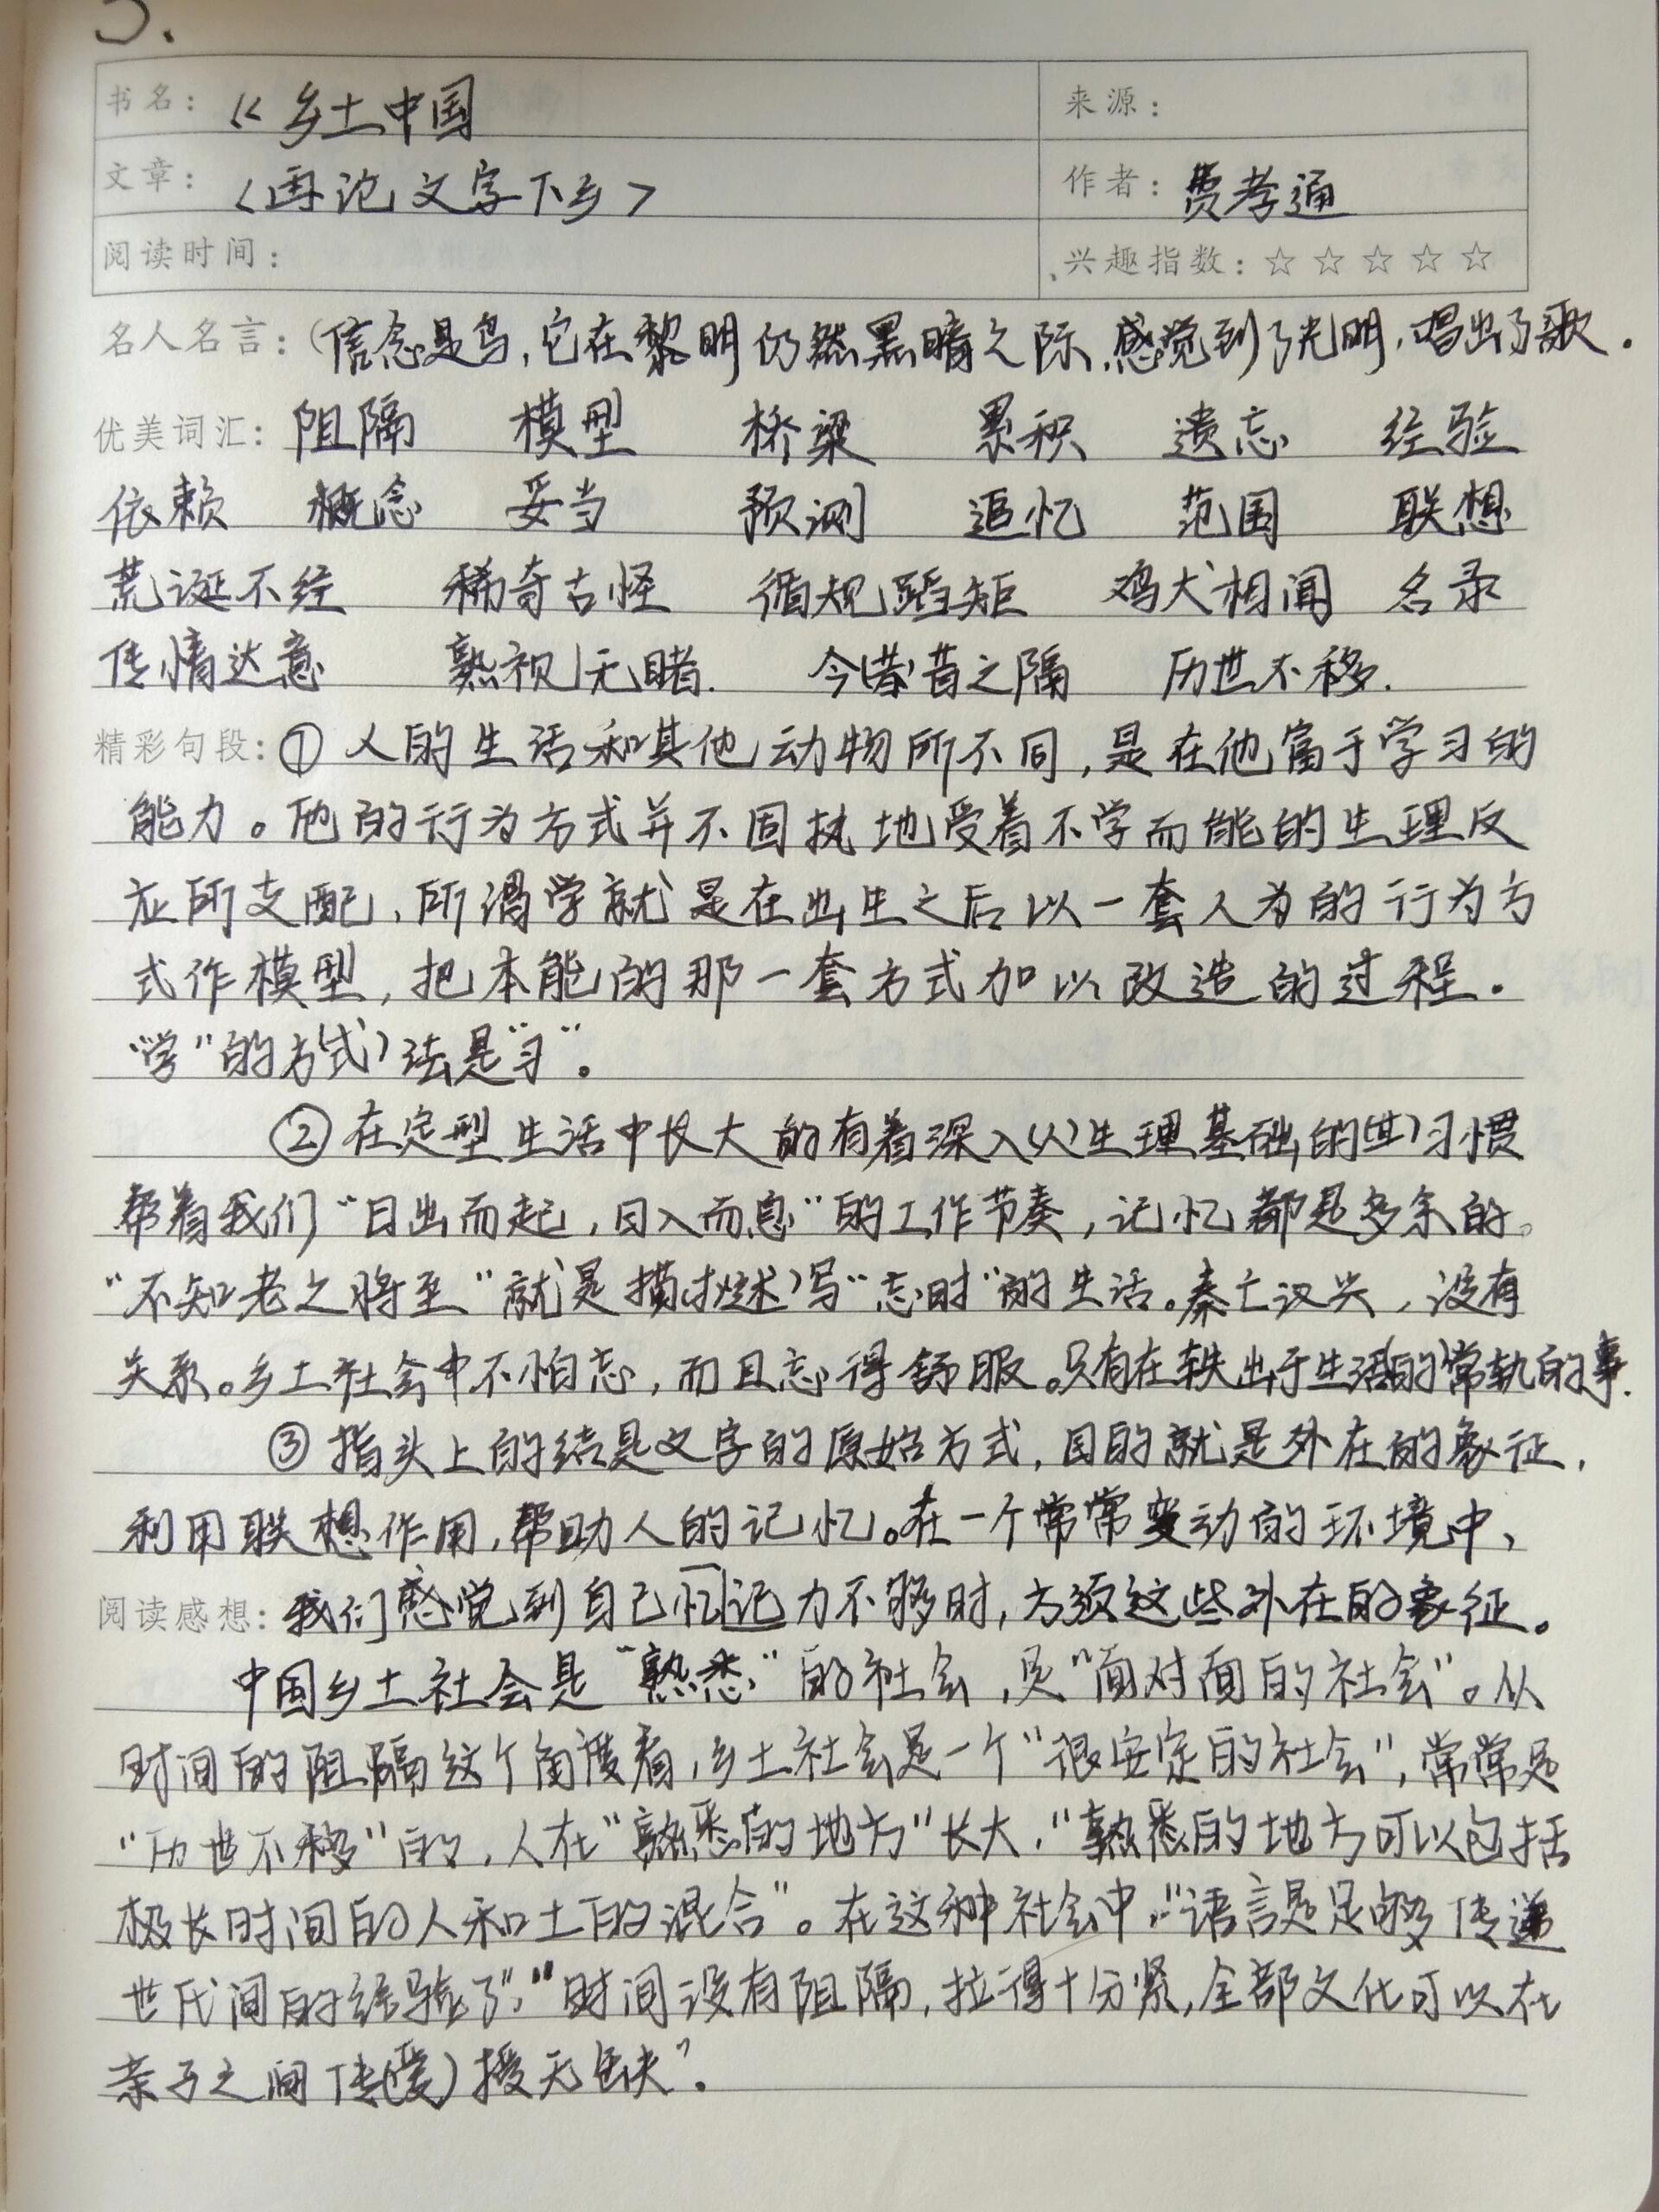 3.
书名：《乡土中国
来源：
文章：〈再论文字下乡〉
作者：费孝通
阅读时间：
兴趣指数：☆☆☆☆☆
名人名言：(信念是鸟,它在黎明仍然黑暗之际,感觉到了光明,唱出了歌.
优美词汇：阻隔 模型 桥梁 累积 遗忘 经验
依赖 概念 妥当 预测 追忆 范围 联想
荒诞不经 稀奇古怪 循规蹈矩 鸡犬相闻 名录
传情达意 熟视无睹. 今昔之隔 历世不移.
精彩句段：①人的生活和其他动物所不同,是在他富于学习的
能力。他的行为方式并不固执地受着不学而能的生理反
应所支配,所谓学就是在出生之后以一套人为的行为方
式作模型,把本能的那一套方式加以改造的过程.
“学”的方(式)法是“习”。
②在定型生活中长大的有着深入(人)生理基础的(其)习惯
帮着我们“日出而起,日入而息”的工作节奏,记忆都是多余的。
“不知老之将至”就是描(述)写“忘时”的生活。秦亡汉兴,没有
关系。乡土社会中不怕忘,而且忘得舒服。只有在轶出于生活的常轨的事.
③指头上的结是文字的原始方式,目的就是外在的象征,
利用联想作用,帮助人的记忆。在一个常常变动的环境中,
阅读感想：我们感觉到自己忆记力不够时,方须这些外在的象征。
中国乡土社会是“熟悉”的社会,是“面对面的社会”。从
时间的阻隔这个角度看,乡土社会是一个“很安定的社会”,常常是
“历世不移”的,人在“熟悉的地方”长大,“熟悉的地方可以包括
极长时间的人和土的混合”。在这种社会中,“语言是足够传递
世代间的经验了”,“时间没有阻隔,拉得十分紧,全部文化可以在
亲子之间传(爱)授无缺”.